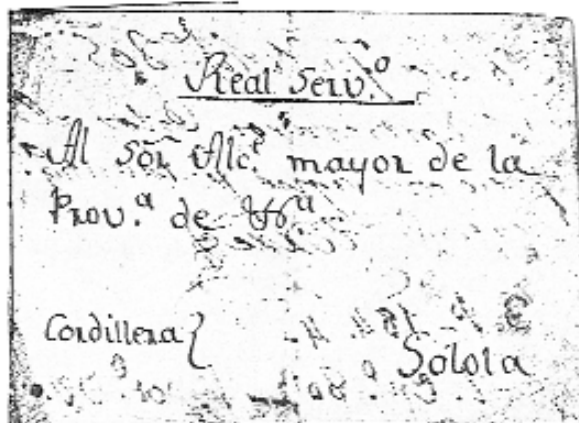 Real Serv.º
Al Sōr Alc.e mayor de la
Prov.ª de
Cordillera{
Sololа